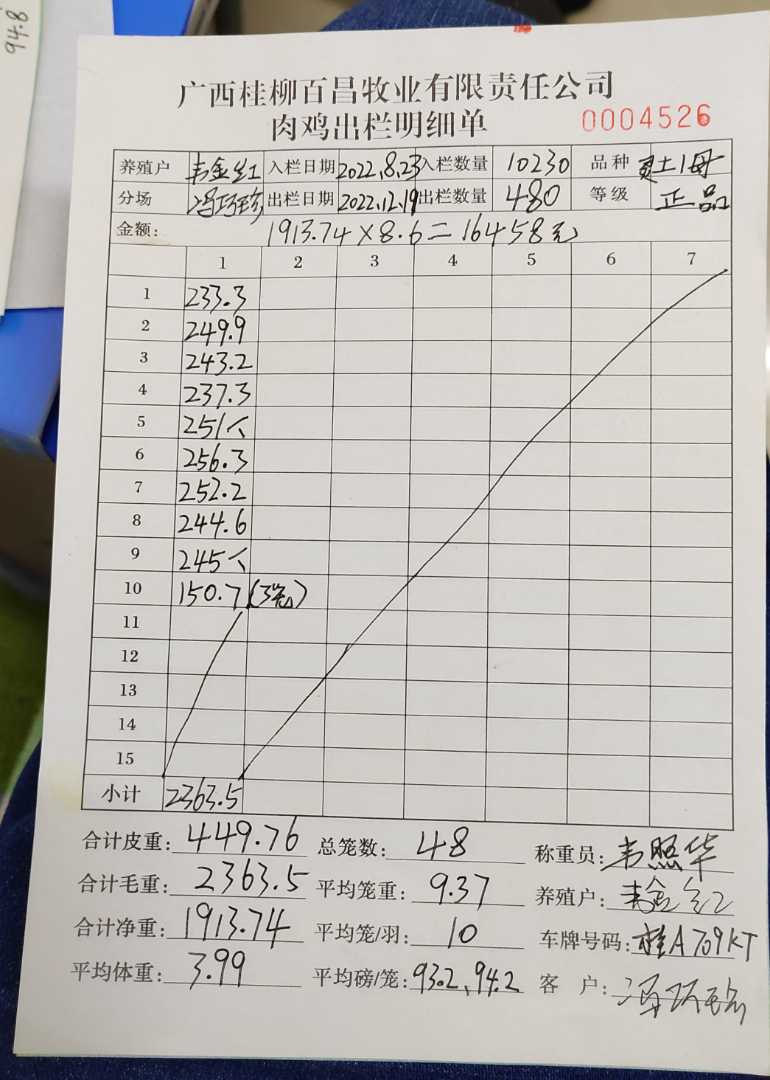 94.8
广西桂柳百昌牧业有限责任公司
肉鸡出栏明细单
0004526
养殖户 韦金红 入栏日期 2022.8.23 入栏数量 10230 品种 土1母
分场 冯珍 出栏日期 2022.12.19 出栏数量 480 等级 正品
金额: 1913.74×8.6=16458元
1 2 3 4 5 6 7
1 233.3
2 249.9
3 243.2
4 237.3
5 251个
6 256.3
7 252.2
8 244.6
9 245个
10 150.7(3笼)
11
12
13
14
15
小计 2363.5
合计皮重: 449.76 总笼数: 48 称重员: 韦照华
合计毛重: 2363.5 平均笼重: 9.37 养殖户: 韦金红
合计净重: 1913.74 平均笼/羽: 10 车牌号码: 桂A709KT
平均体重: 3.99 平均磅/笼: 93.2、94.2 客户: